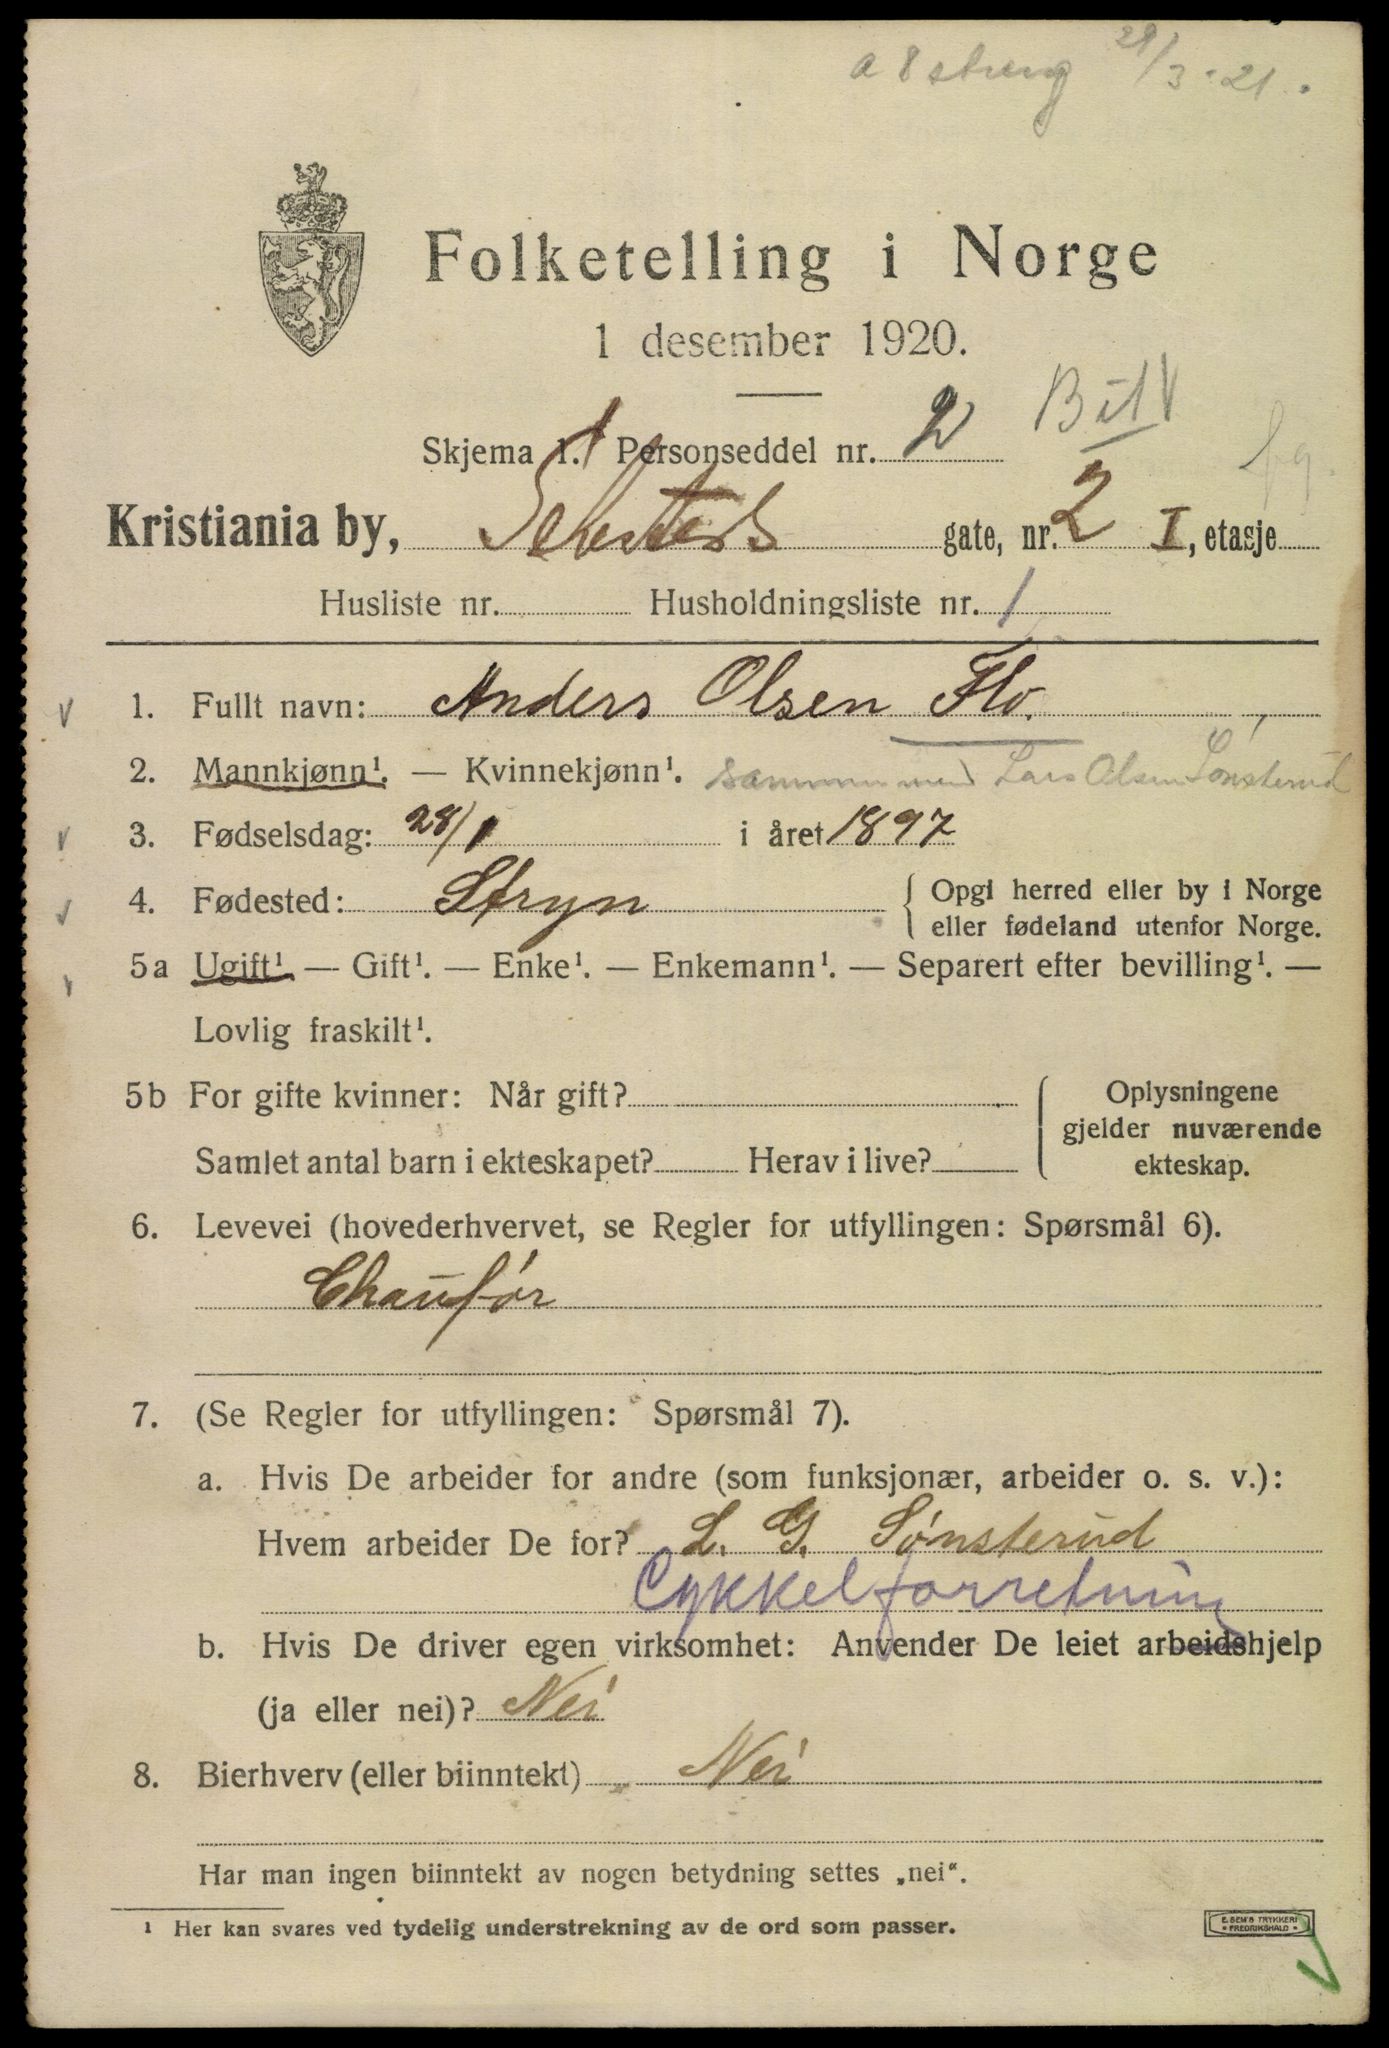 29/3-21.
Folketelling i Norge
1 desember 1920.
Skjema 1. Personseddel nr. 2
Kristiania by, Schwters gate, nr. 2 I, etasje
Husliste nr. Husholdningsliste nr. 1
1. Fullt navn: Anders Olsen Flo.
2. Mannkjønn¹. — Kvinnekjønn¹. sammen med Lars Olsen Sønsterud
3. Fødselsdag: 28/1 i året 1897
4. Fødested: Stryn { Opgi herred eller by i Norge
eller fødeland utenfor Norge.
5a Ugift¹ — Gift¹. — Enke¹. — Enkemann¹. — Separert efter bevilling¹. —
Lovlig fraskilt¹.
5b For gifte kvinner: Når gift?
Samlet antal barn i ekteskapet? Herav i live?
Oplysningene
gjelder nuværende
ekteskap.
6. Levevei (hovederhvervet, se Regler for utfyllingen: Spørsmål 6).
Chaufør
7. (Se Regler for utfyllingen: Spørsmål 7).
a. Hvis De arbeider for andre (som funksjonær, arbeider o. s. v.):
Hvem arbeider De for? L. G. Sønsterud
Cykkelforretning
b. Hvis De driver egen virksomhet: Anvender De leiet arbeidshjelp
(ja eller nei)? Nei
8. Bierhverv (eller biinntekt) Nei
Har man ingen biinntekt av nogen betydning settes „nei“.
¹ Her kan svares ved tydelig understrekning av de ord som passer.
E. SEM'S TRYKKERI
• FREDRIKSHALD •